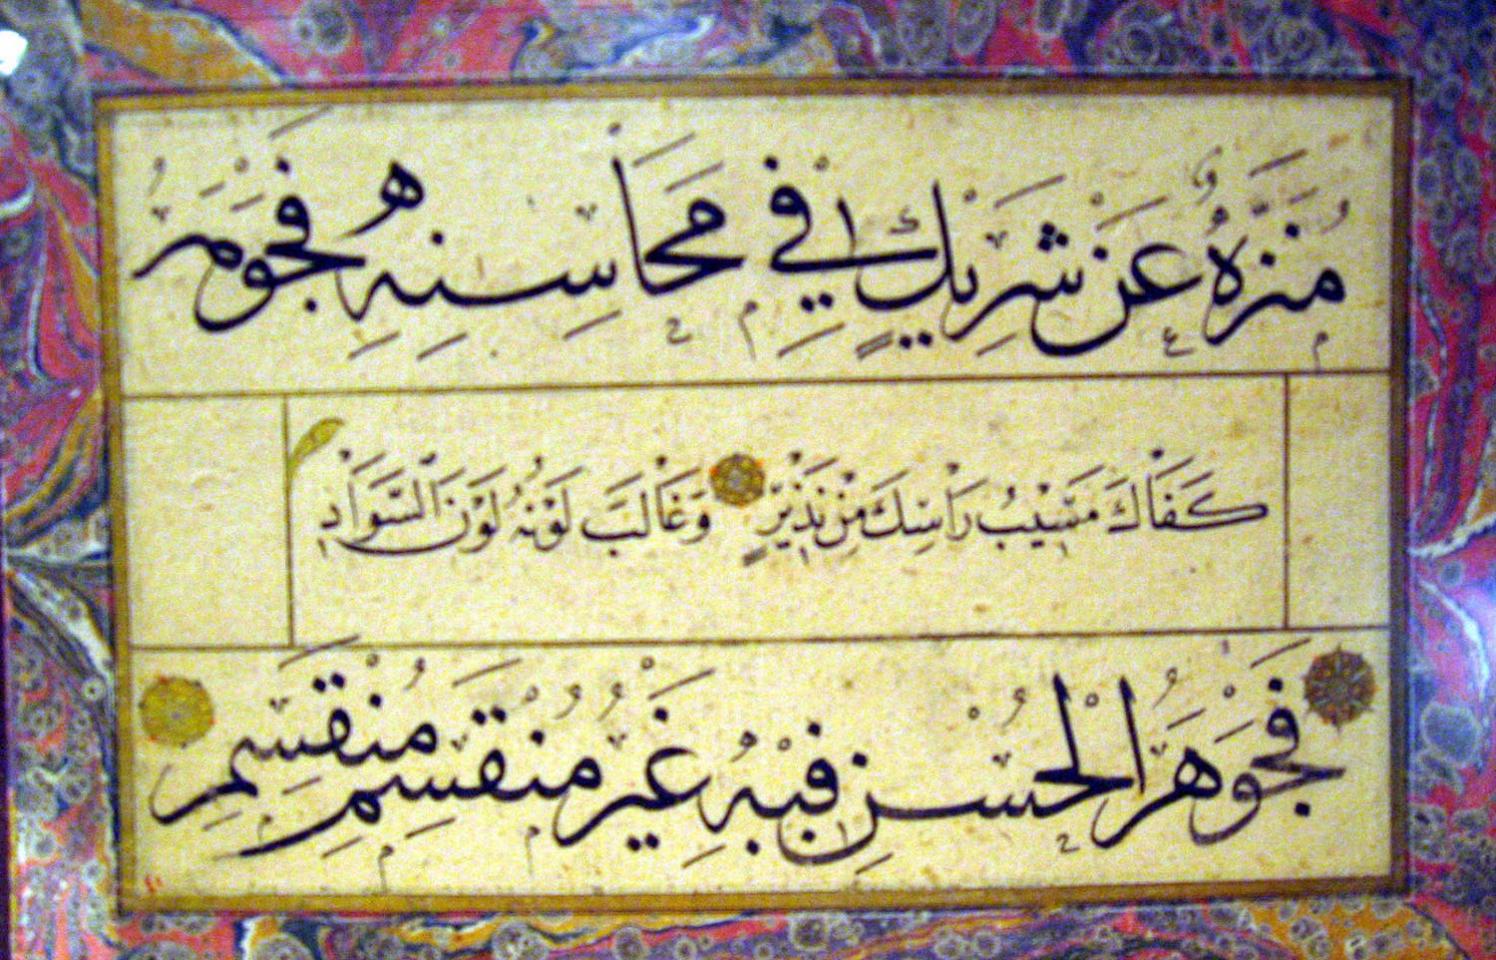 مُنَزَّهٌ عَنْ شَرِيْكٍ فِي مَحَاسِنِهِ فَجَوْهَرُ
كَفَاكَ مَشِيْبُ رَأْسِكَ مِنْ نَذِيْرٍ وَغَالَبَ لَوْنُهُ لَوْنَ السَّوَادِ
فَجَوْهَرُ الْحُسْنِ فِيْهِ غَيْرُ مُنْقَسِمِ مُنْقَسِمِ